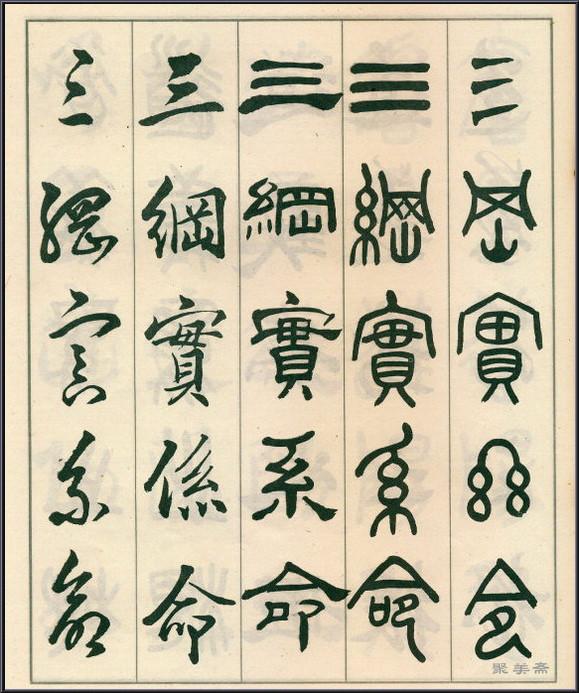 三岡實系命
三綱實系命
三綱實系命
三綱實係命
三綱實系命
聚美斋